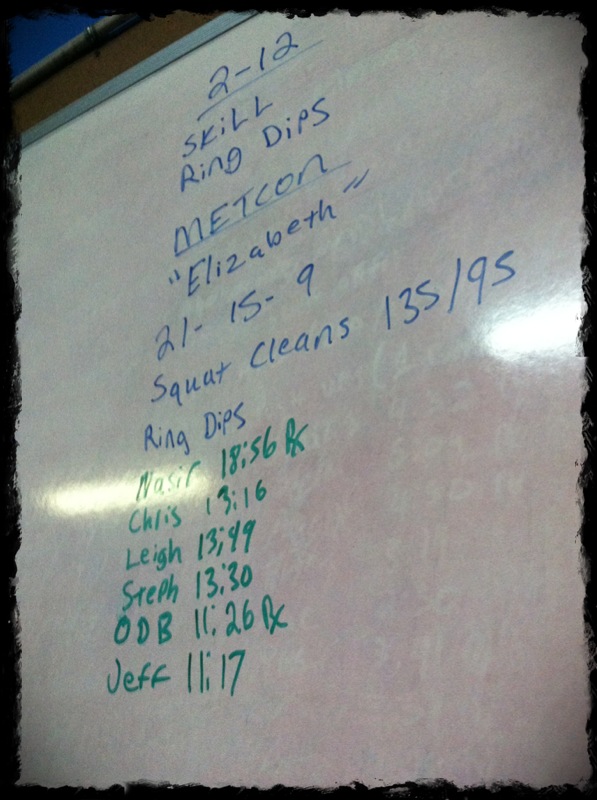 2-12
SKiLL
Ring Dips
METCON
"Elizabeth"
21-15-9
Squat Cleans 135/95
Ring Dips
Nasir 18:56 Rx
Chris 13:16
Leigh 13:49
Steph 13:30
ODB 11:26 Rx
Jeff 11:17